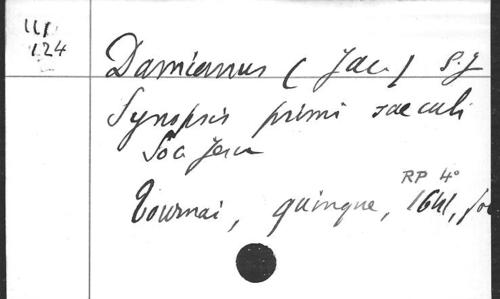 124
Damianus (Jac.) S.J
Synopsis primi saeculi
Soc Jesu
RP 4°
Tournai, quinque, 1641,